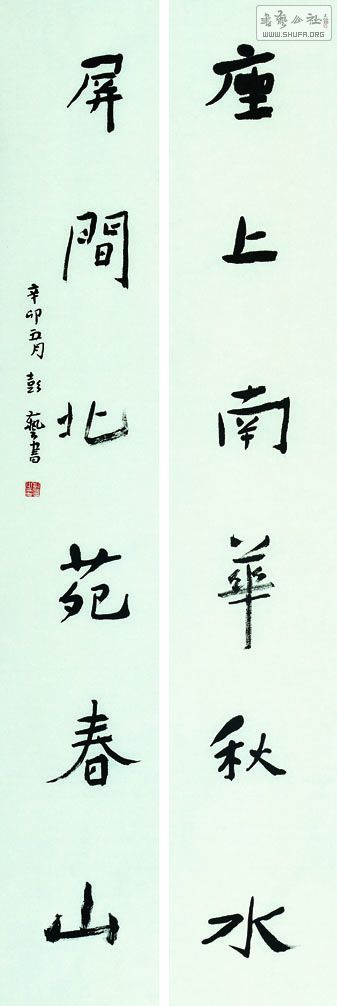 座上南華秋水
屏間北苑春山
辛卯五月彭藝書
书艺公社
WWW.SHUFA.ORG